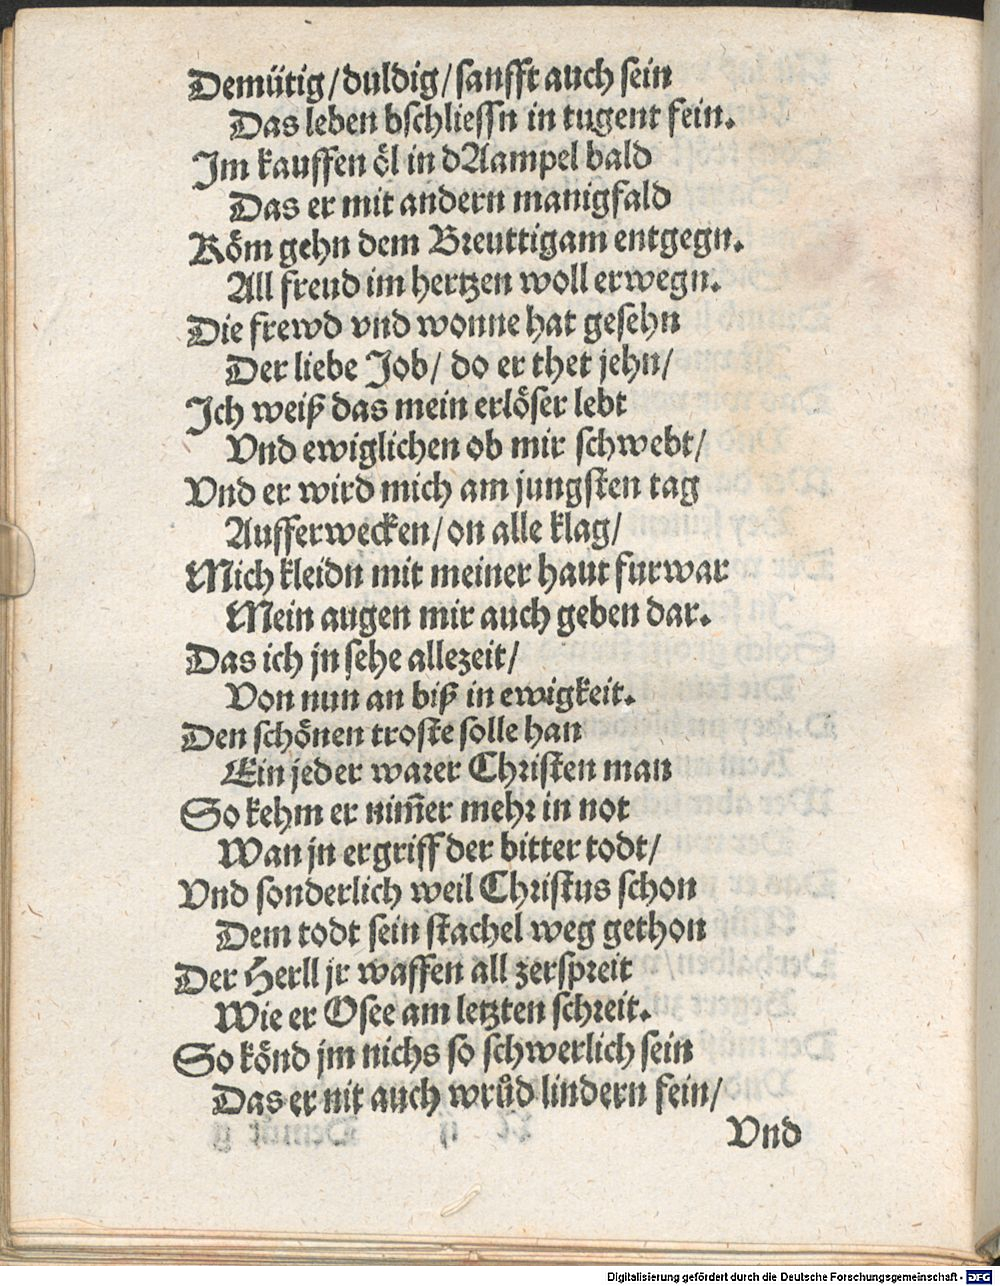 Demütig/duldig/sanfft auch sein
Das leben bschliessn in tugent fein.
Im kauffen öl in dAampel bald
Das er mit andern manigfald
Köm gehn dem Breuttigam entgegn.
All freud im hertzen woll erwegn.
Die frewd vnd wonne hat gesehn
Der liebe Job/ do er thet jehn/
Ich weiß das mein erlöser lebt
Vnd ewiglichen ob mir schwebt/
Vnd er wird mich am jungsten tag
Aufferwecken/on alle klag/
Mich kleidn mit meiner haut furwar
Mein augen mir auch geben dar.
Das ich jn sehe allezeit/
Von nun an biß in ewigkeit.
Den schönen troste solle han
Ein jeder warer Christen man
So kehm er nim̄er mehr in not
Wan jn ergriff der bitter todt/
Vnd sonderlich weil Christus schon
Dem todt sein stachel weg gethon
Der Herll jr waffen all zerspreit
Wie er Osee am letzten schreit.
So könd jm nichs so schwerlich sein
Das er nit auch wrůd lindern fein/
Vnd
Digitalisierung gefördert durch die Deutsche Forschungsgemeinschaft - DFG